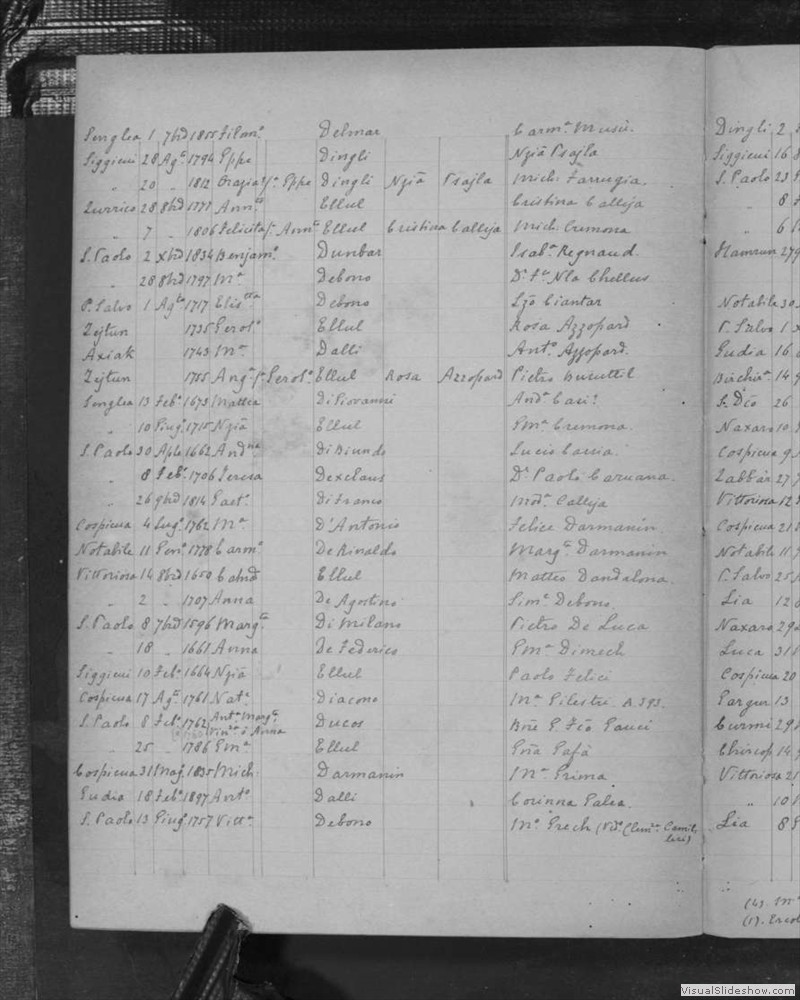 Senglea 1 7bre 1855 Filam.ᵃ Delmar Carm.ᵃ Musù.
Siggieui 28 Ag.ᵗ 1794 Gppe Dingli Ngiã Psajla
„ 20 „ 1812 Grazia f.ᵃ Gppe Dingli Ngiã Psajla Mich. Farrugia.
Zurrico 28 8bre 1777 Ann.ᵗᵃ Ellul Cristina Calleja
„ 7 „ 1806 Felicita f.ᵃ Ann.ᵗ Ellul Cristina Calleja Mich. Cremona
S. Paolo 2 xbre 1834 Benjam.ᵒ Dunbar Isab.ᵃ Regnaud.
„ 28 8bre 1797 M.ᵃ Debono D.ʳ Nla Chellus
P. Salvo 1 Ag.ᵗᵒ 1717 Elis.ᵗᵗᵃ Debono Lzõ Ciantar
Zejtun 1735 Gerol.ᵒ Ellul Rosa Azzopard
Axiak 1743 M.ᵃ Dalli Ant.ᵒ Azzopard.
Zejtun 1755 Ang.ᵃ f.ᵃ Gerol.ᵒ Ellul Rosa Azzopard Pietro Busuttil
Senglea 13 Feb.ᵒ 1673 Mattea Di Giovanni And.ᵃ
„ 10 Giug.ᵒ 1715 Ngiã Ellul Gm.ᵃ Cremona.
S. Paolo 30 Aple 1662 And.ⁿᵃ Di Biundo Lucio
„ 8 Feb.ᵒ 1706 Teresa Dexclaus D.ʳ Paolo Caruana.
„ 26 9bre 1814 Gaet.ᵃ Di Franco Mod.ᵃ Calleja
Cospicua 4 Lug.ᵒ 1762 M.ᵃ D'Antonio Felice Darmanin.
Notabile 11 Gen.ᵒ 1778 Carm.ᵃ De Rinaldo Marg.ᵃ Darmanin
Vittoriosa 14 8bre 1650 Ellul Matteo Dandalona.
„ 2 „ 1707 Anna De Agostino Sim.ᵉ Debono.
S. Paolo 8 7bre 1596 Marg.ᵗᵃ Di Milano Pietro De Luca
„ 18 „ 1661 Anna De Federico Gm.ᵃ Dimech
Siggieui 10 Feb.ᵒ 1664 Ngiã Ellul Paolo Felici
Cospicua 17 Ag.ᵗ 1761 Nat.ᵉ Diacono M.ᵃ Silestri A. 393.
S. Paolo 8 Feb.ᵒ 1762 Ant.ᵃ Marg.ᵃ Ducos
Vin.ᵃ o Anna
„ 25 „ 1786 Gm.ᵃ Ellul Gña Gafà
Cospicua 31 Mag. 1835 Mich. Darmanin M.ᵃ Grima
Gudia 18 Feb.ᵒ 1897 Ant.ᵒ Dalli Corinna Galea.
S. Paolo 13 Giug.ᵒ 1757 Vitt.ᵃ Debono M.ᵒ Grech (Vd.ᵒ Clem.ᵃ Camil-
leri)
Dingli 2
Siggieui 16
S. Paolo 23
„ 8
„ 6
Hamrun 27
Notabile 30
P. Salvo 1
Gudia 16
Birchir.ᵃ 14
S. Dco 26
Naxaro 10
Cospicua 9
Zabbar 27
Vittoriosa 12
Cospicua 21
Notabile 11
P. Salvo 25
Lia 12
Naxaro 29
Luca 31
Cospicua 20
Gargur 13
Curmi 29
Chircop 14
Vittoriosa 21
„ 10
Lia 8
(4). M.ᵃ
(1). Ercol
VisualSlideshow.com